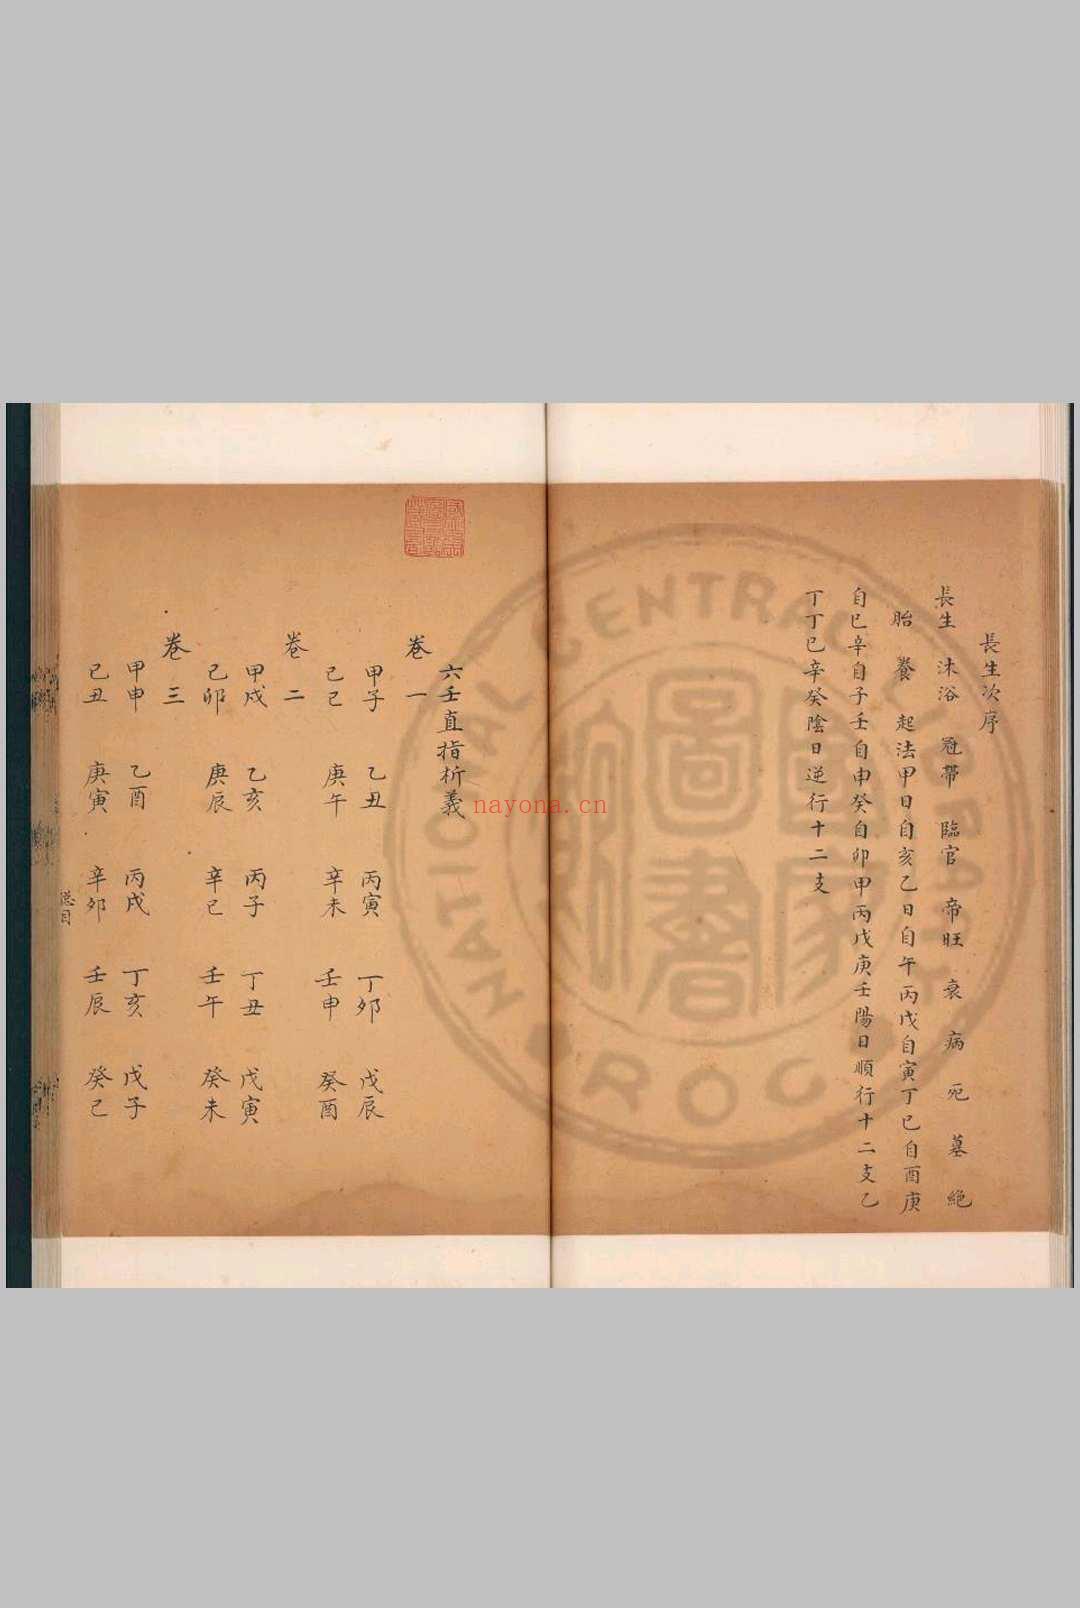 長生次序
長生 沐浴 冠帶 臨官 帝旺 衰 病 死 墓 絶
胎 養 起法甲日自亥乙日自午丙戊自寅丁己自酉庚
自巳辛自子壬自申癸自卯甲丙戊庚壬陽日順行十二支乙
丁丁巳辛癸陰日逆行十二支
六壬直指析義
卷一
甲子 乙丑 丙寅 丁卯 戊辰
己巳 庚午 辛未 壬申 癸酉
卷二
甲戌 乙亥 丙子 丁丑 戊寅
己卯 庚辰 辛巳 壬午 癸未
卷三
甲申 乙酉 丙戌 丁亥 戊子
己丑 庚寅 辛卯 壬辰 癸巳
總目
nayona.cn
國家圖書館
NATIONAL CENTRAL LIBRARY